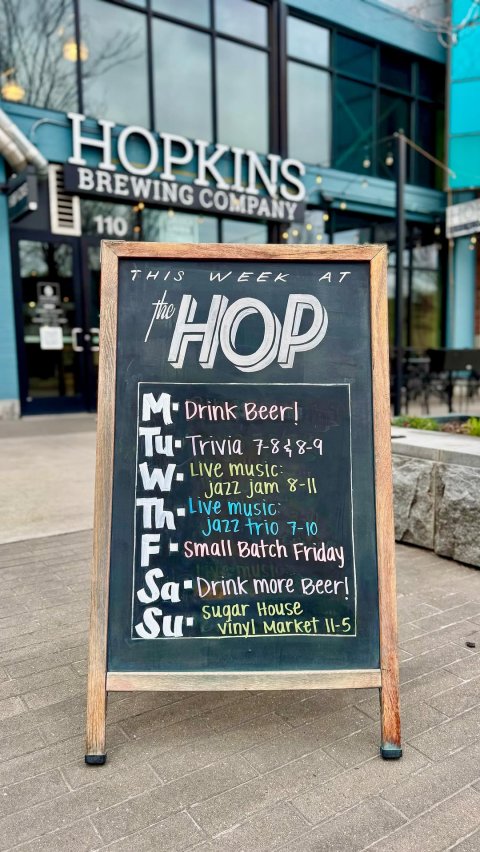 HOPKINS
BREWING COMPANY
110
THIS WEEK AT
the HOP
M· Drink Beer!
Tu· Trivia 7-8 & 8-9
W· Live music:
jazz jam 8-11
Th· Live music:
jazz trio 7-10
F· Small Batch Friday
Sa· Drink more Beer!
Su· Sugar House
vinyl Market 11-5